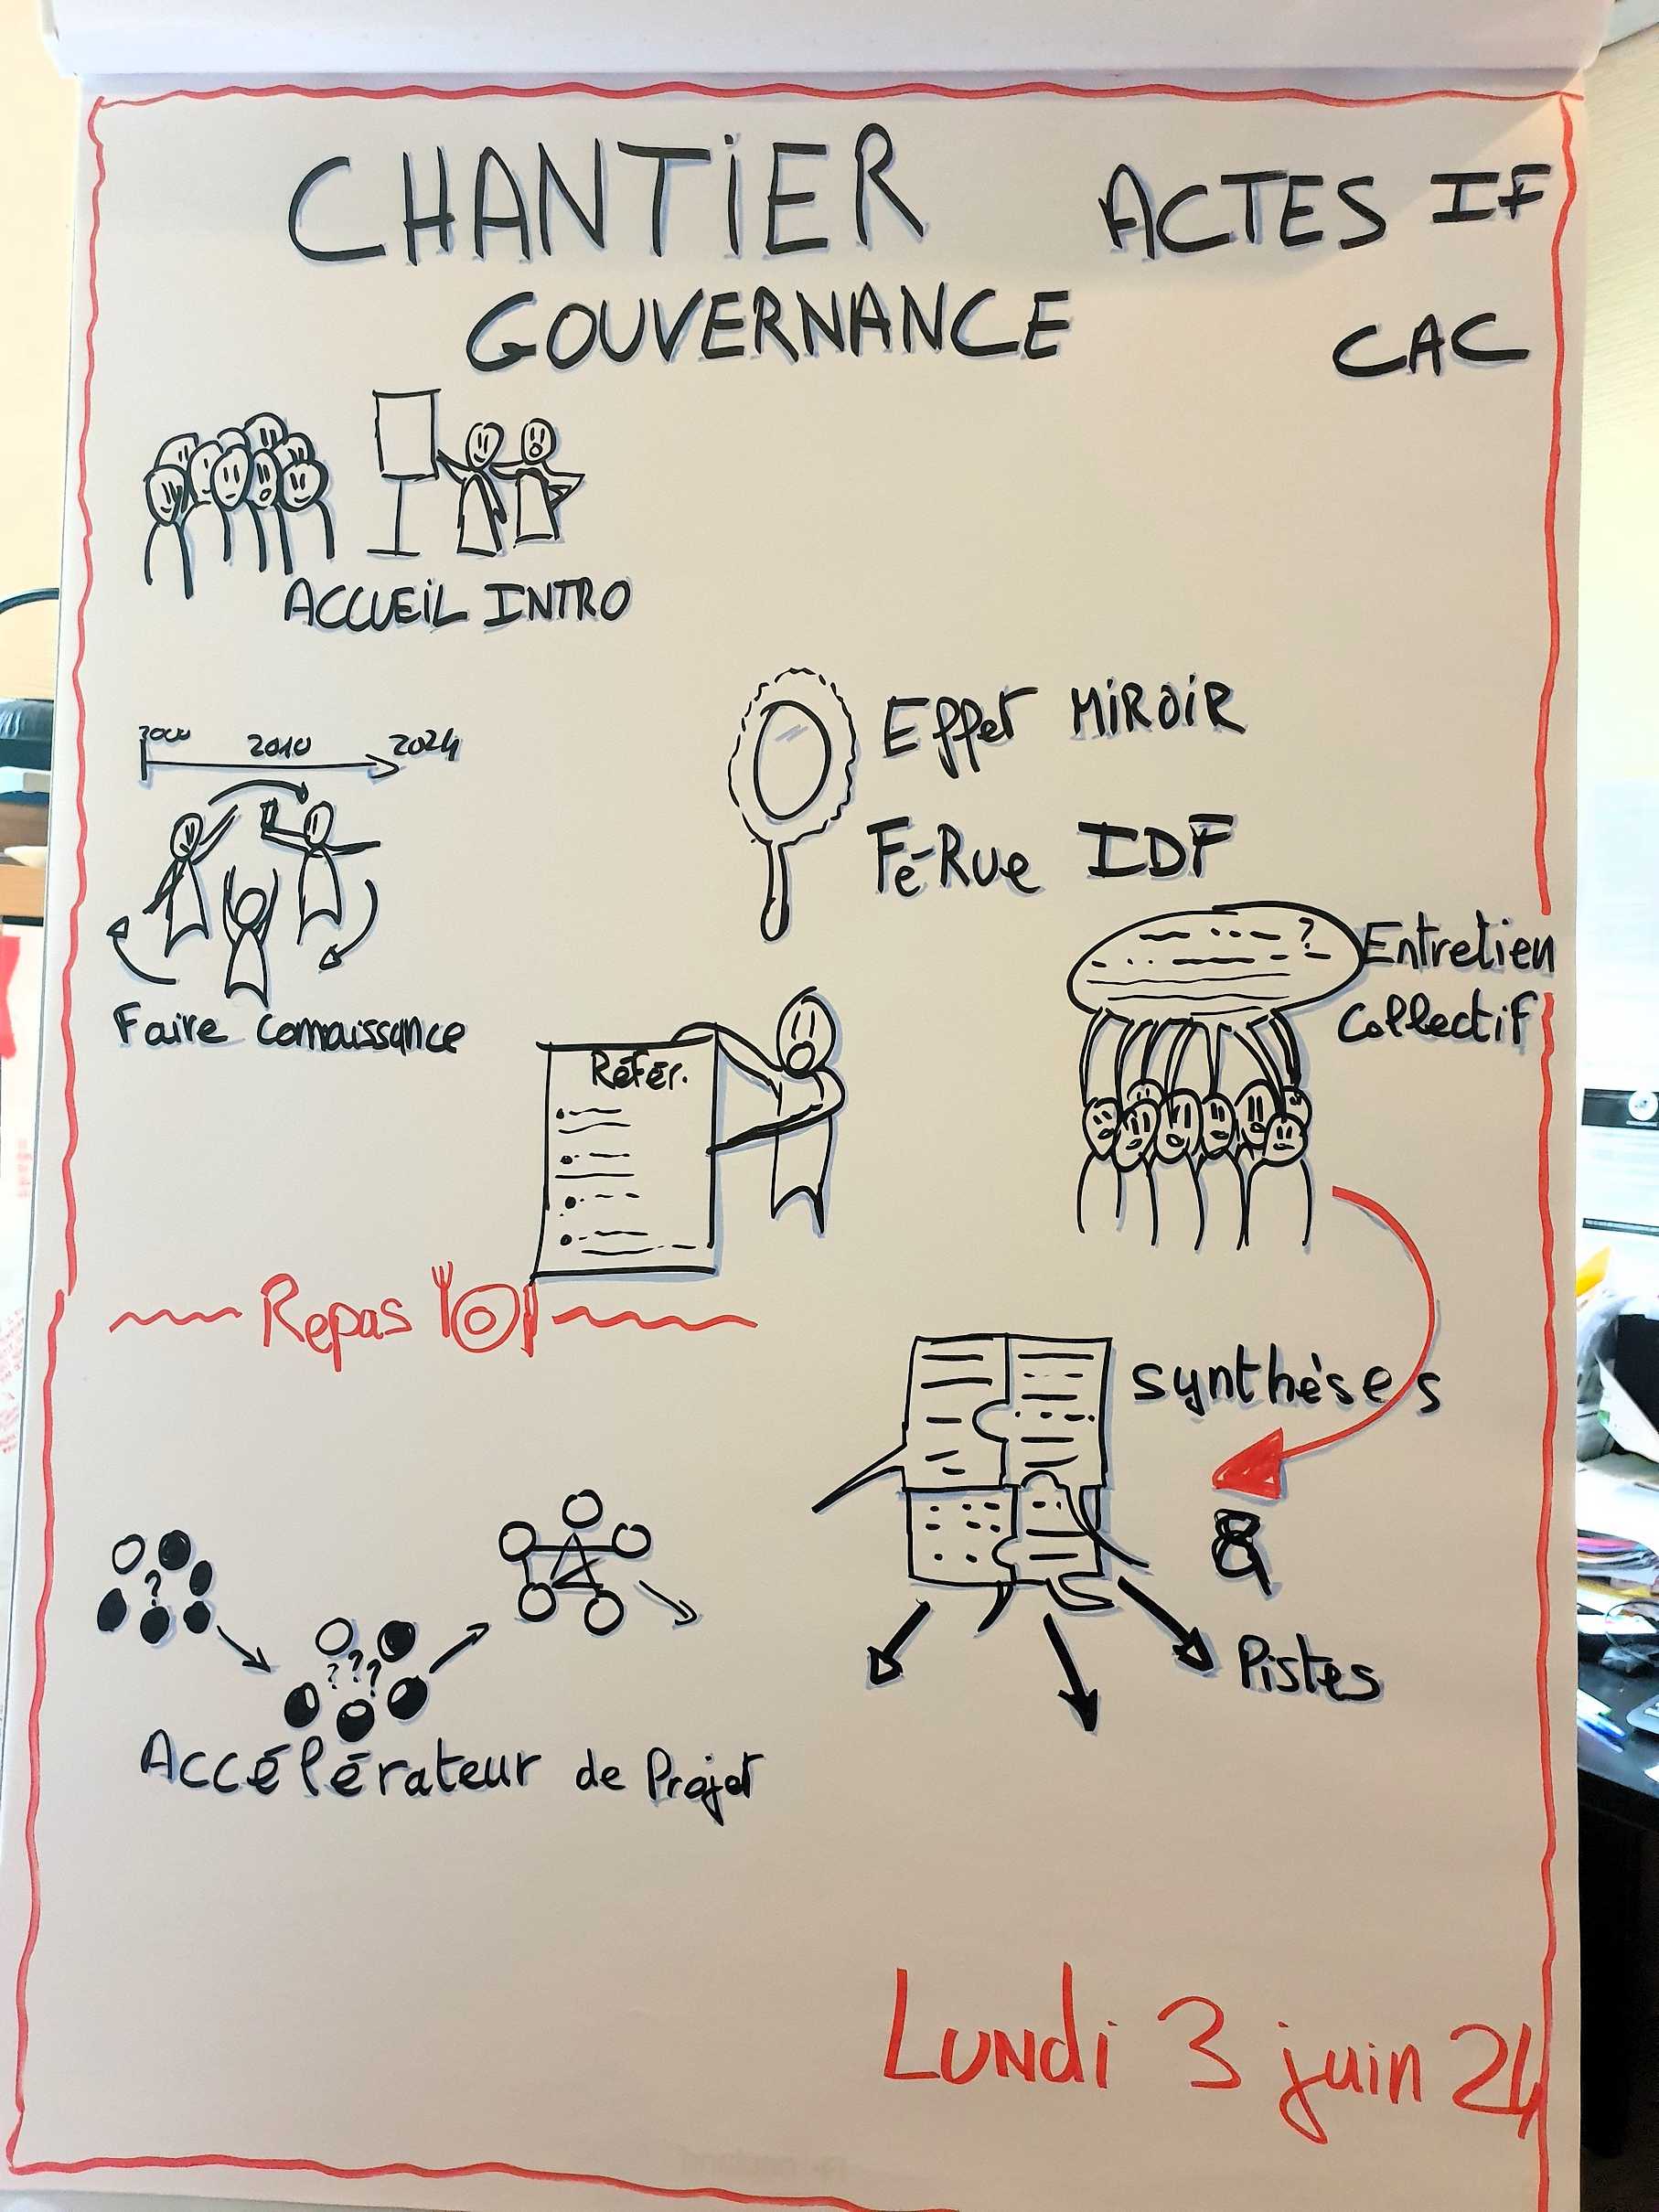 CHANTiER
ACTES IF
GOUVERNANCE
CAC
ACCUEiL INTRO
2000 2010 2024
Faire connaissance
Effet MiROiR
Fé-Rue IDF
?
Entretien
collectif
Référ.
Repas
synthèses
&
Pistes
?
? ? ?
Accélérateur de Projet
LUNdi 3 juin 24